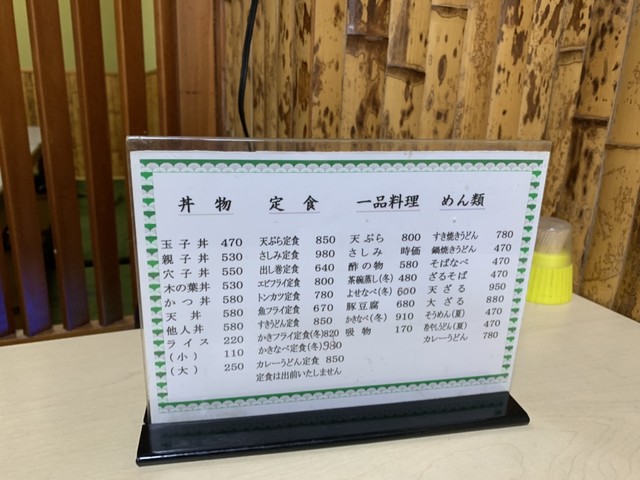 丼物
玉子丼 470
親子丼 530
穴子丼 550
木の葉丼 530
かつ丼 580
天丼 580
他人丼 580
ライス 220
(小) 110
(大) 250
定食
天ぷら定食 850
さしみ定食 980
出し巻定食 640
エビフライ定食 800
トンカツ定食 780
魚フライ定食 670
すきうどん定食 850
かきフライ定食(冬)820
かきなべ定食(冬)980
カレーうどん定食 850
定食は出前いたしません
一品料理
天ぷら 800
さしみ 時価
酢の物 580
茶碗蒸し(冬) 480
よせなべ(冬) 600
豚豆腐 680
かきなべ(冬) 910
吸物 170
めん類
すき焼きうどん 780
鍋焼きうどん 470
そばなべ 470
ざるそば 470
天ざる 950
大ざる 880
そうめん(夏) 470
冷やしうどん(夏) 470
カレーうどん 780